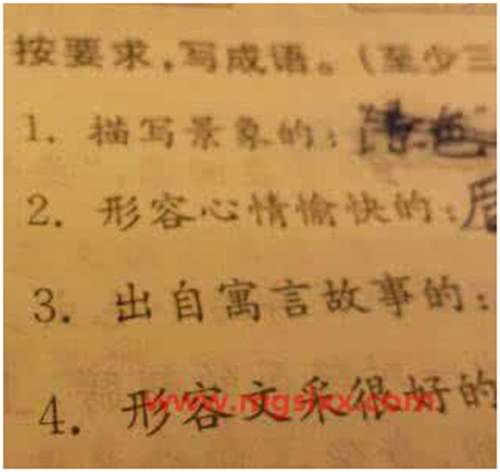 按要求,写成语。(至少三
1. 描写景象的:
2. 形容心情愉快的:
3. 出自寓言故事的:
4. 形容文采很好的